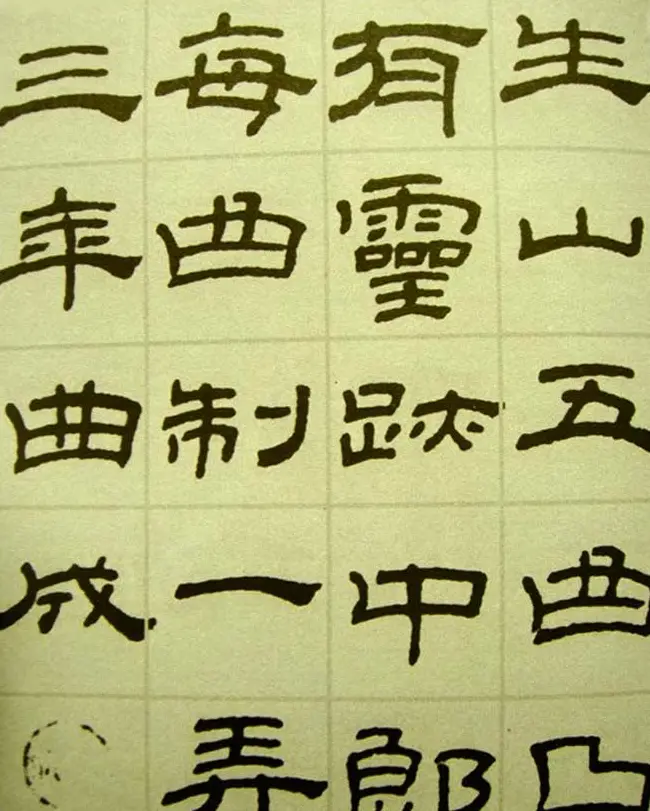 生山五曲
有靈跡中郎
每曲制一弄
三年曲成